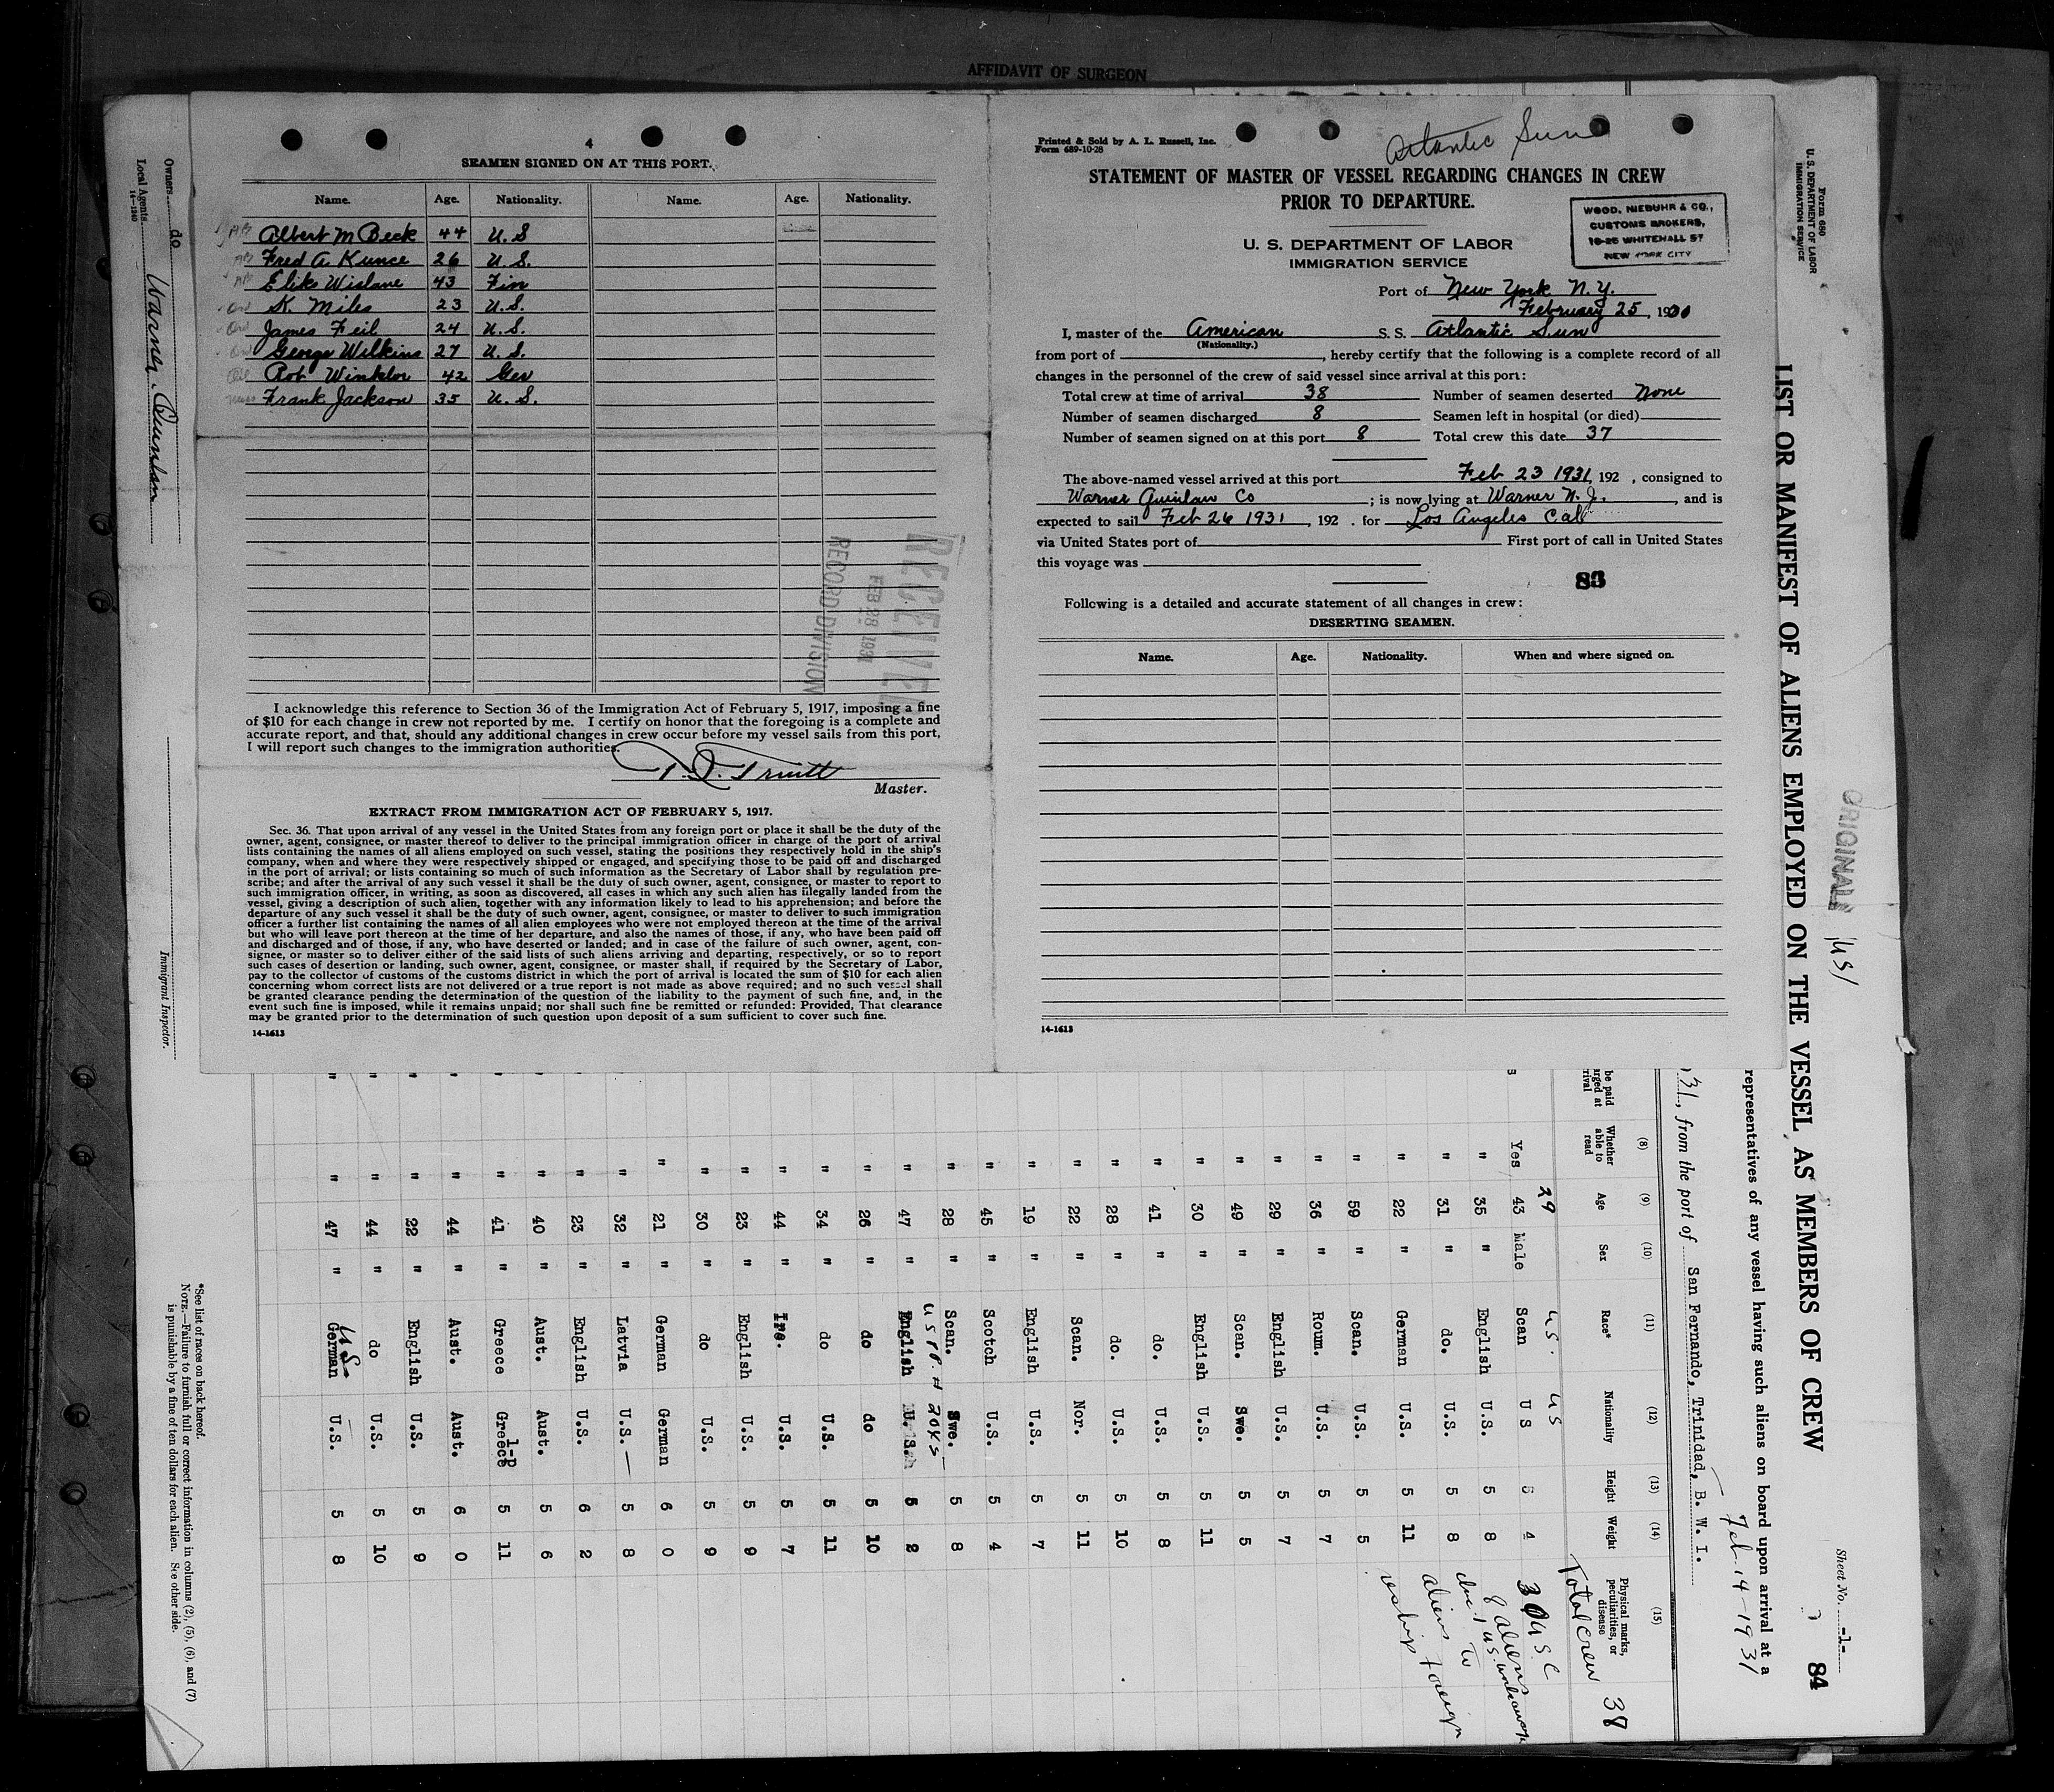 AFFIDAVIT OF SURGEON
4
SEAMEN SIGNED ON AT THIS PORT.
Name. Age. Nationality. Name. Age. Nationality.
Albert M Beck 44 U.S
Fred A. Kunce 26 U.S.
Elik Wislane 43 Fin
K. Miles 23 U.S.
James Feil 24 U.S.
George Wilkins 27 U.S.
Rob Winkler 42 Ger
Frank Jackson 35 U.S.
RECEIVED
FEB 28 1931
RECORD DIVISION
I acknowledge this reference to Section 36 of the Immigration Act of February 5, 1917, imposing a fine
of $10 for each change in crew not reported by me. I certify on honor that the foregoing is a complete and
accurate report, and that, should any additional changes in crew occur before my vessel sails from this port,
I will report such changes to the immigration authorities.
Truitt
Master.
EXTRACT FROM IMMIGRATION ACT OF FEBRUARY 5, 1917.
Sec. 36. That upon arrival of any vessel in the United States from any foreign port or place it shall be the duty of the
owner, agent, consignee, or master thereof to deliver to the principal immigration officer in charge of the port of arrival
lists containing the names of all aliens employed on such vessel, stating the positions they respectively hold in the ship's
company, when and where they were respectively shipped or engaged, and specifying those to be paid off and discharged
in the port of arrival; or lists containing so much of such information as the Secretary of Labor shall by regulation pre-
scribe; and after the arrival of any such vessel it shall be the duty of such owner, agent, consignee, or master to report to
such immigration officer, in writing, as soon as discovered, all cases in which any such alien has illegally landed from the
vessel, giving a description of such alien, together with any information likely to lead to his apprehension; and before the
departure of any such vessel it shall be the duty of such owner, agent, consignee, or master to deliver to such immigration
officer a further list containing the names of all alien employees who were not employed thereon at the time of the arrival
but who will leave port thereon at the time of her departure, and also the names of those, if any, who have been paid off
and discharged and of those, if any, who have deserted or landed; and in case of the failure of such owner, agent, con-
signee, or master so to deliver either of the said lists of such aliens arriving and departing, respectively, or so to report
such cases of desertion or landing, such owner, agent, consignee, or master shall, if required by the Secretary of Labor,
pay to the collector of customs of the customs district in which the port of arrival is located the sum of $10 for each alien
concerning whom correct lists are not delivered or a true report is not made as above required; and no such vessel shall
be granted clearance pending the determination of the question of the liability to the payment of such fine, and, in the
event such fine is imposed, while it remains unpaid; nor shall such fine be remitted or refunded: Provided, That clearance
may be granted prior to the determination of such question upon deposit of a sum sufficient to cover such fine.
14-1613
Printed & Sold by A. L. Russell, Inc.
Form 689-10-28
Atlantic Sun
STATEMENT OF MASTER OF VESSEL REGARDING CHANGES IN CREW
PRIOR TO DEPARTURE.
WOOD, NIEBUHR & CO.,
CUSTOMS BROKERS,
16-25 WHITEHALL ST
NEW YORK CITY
U. S. DEPARTMENT OF LABOR
IMMIGRATION SERVICE
Port of New York N.Y.
February 25, 19
I, master of the American S. S. Atlantic Sun
(Nationality.)
from port of , hereby certify that the following is a complete record of all
changes in the personnel of the crew of said vessel since arrival at this port:
Total crew at time of arrival 38 Number of seamen deserted None
Number of seamen discharged 8 Seamen left in hospital (or died)
Number of seamen signed on at this port 8 Total crew this date 37
The above-named vessel arrived at this port Feb 23 1931, 192 , consigned to
Warner Quinlan Co ; is now lying at Warner N.J. , and is
expected to sail Feb 26 1931 , 192 . for Los Angeles Cal
via United States port of First port of call in United States
this voyage was
83
Following is a detailed and accurate statement of all changes in crew:
DESERTING SEAMEN.
Name. Age. Nationality. When and where signed on.
14-1613
Form 680
U. S. DEPARTMENT OF LABOR
IMMIGRATION SERVICE
ORIGINAL
Sheet No. -1-
84
LIST OR MANIFEST OF ALIENS EMPLOYED ON THE VESSEL AS MEMBERS OF CREW
representatives of any vessel having such aliens on board upon arrival at a
Feb-14-1931
31, from the port of San Fernando, Trinidad, B. W. I.
(8) (9) (10) (11) (12) (13) (14) (15)
Whether able to read Age Sex Race* Nationality Height Weight Physical marks, peculiarities, or disease
29 US. US Total crew 38
Yes 43 Male Scan US 5 4
" 35 " English U.S. 5 8
" 31 " do. U.S. 5 8
" 22 " German U.S. 5 11
" 59 " Scan. U.S. 5 5
" 36 " Roum. U.S. 5 7
" 29 " English U.S. 5 7
" 49 " Scan. Swe. 5 5
" 30 " English U.S. 5 11
" 41 " do. U.S. 5 8
" 28 " do. U.S. 5 10
" 22 " Scan. Nor. 5 11
" 19 " English U.S. 5 7
" 45 " Scotch U.S. 5 4
" 28 " Scan. Swe. 5 8
" 47 " English U.S. 5 2
" 26 " do do 5 10
" 34 " do U.S. 5 11
" 44 " Ire. U.S. 5 7
" 23 " English U.S. 5 9
" 30 " do U.S. 5 9
" 21 " German German 6 0
" 32 " Latvia U.S. 5 8
" 23 " English U.S. 6 2
" 40 " Aust. Aust. 5 6
" 41 " Greece Greece 5 11
" 44 " Aust. Aust. 6 0
" 22 " English U.S. 5 9
" 44 " do U.S. 5 10
" 47 " German U.S. 5 8
*See list of races on back hereof.
NOTE.—Failure to furnish full or correct information in columns (2), (5), (6), and (7)
is punishable by a fine of ten dollars for each alien. See other side.
Owners do
Local Agents Warner Quinlan
14-1240
Immigrant Inspector.